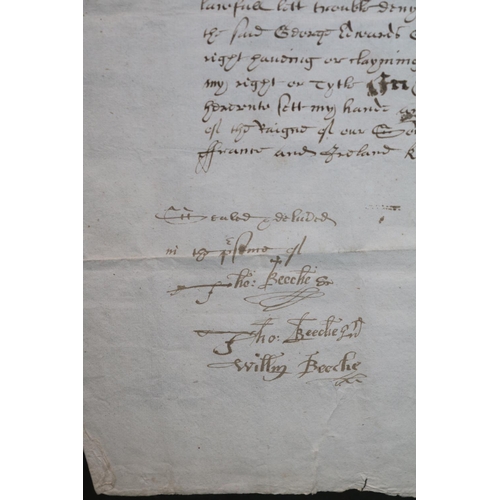 lawfull lett trouble deny
the said George Edwards
right haveing or clayming
my right or Tytle In
hereunto sett my hande
of the Raigne of our
ffrance and Ireland
Sealed & deliuered
in the p̱sence of
Tho: Beeche
Tho: Beeche
Willm Beeche